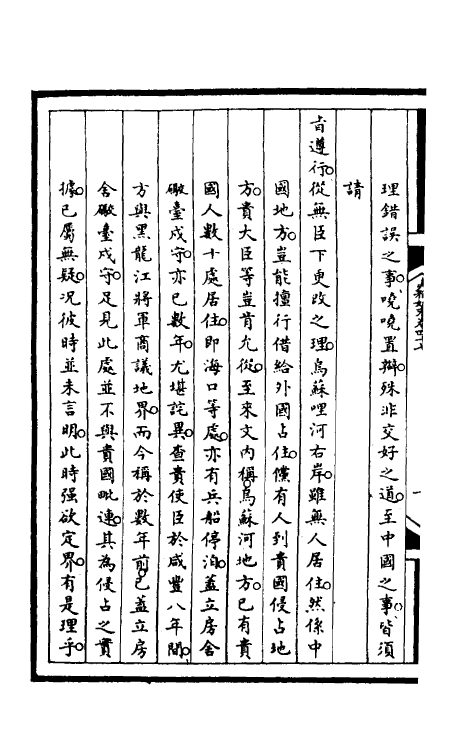 理錯誤之事。嘵嘵置辯。殊非交好之道。至中國之事。皆須
請
旨遵行。從無臣下更改之理。烏蘇哩河右岸。雖無人居住。然係中
國地方。豈能擅行借給外國占住。儻有人到貴國侵占地
方。貴大臣等豈肯允從。至來文內稱。烏蘇河地方。已有貴
國人數十處居住。即海口等處。亦有兵船停泊。蓋立房舍
礮臺戍守。亦已數年。尤堪詫異。查貴使臣於咸豐八年間。
方與黑龍江將軍商議地界。而今稱於數年前。已蓋立房
舍礮臺戍守。足見此處並不與貴國毗連。其為侵占之實
據。已屬無疑。況彼時並未言明。此時强欲定界。有是理乎。